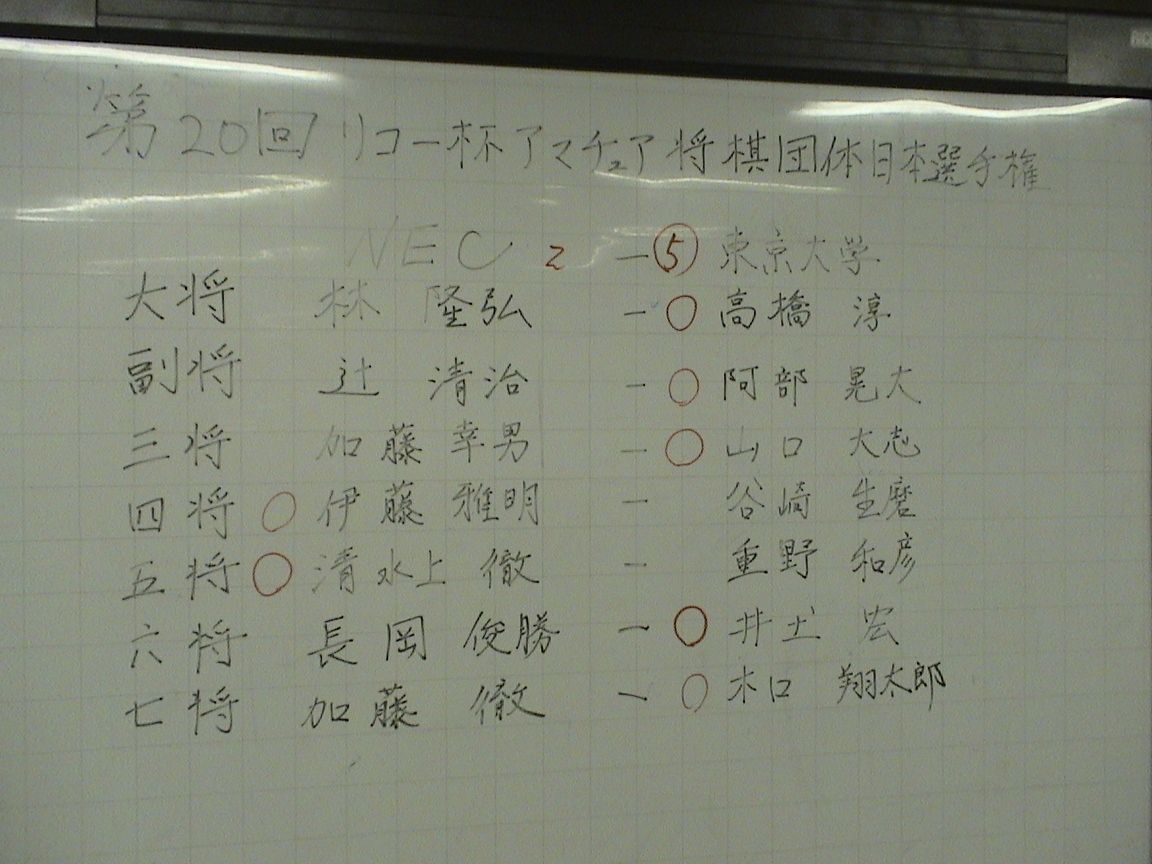 第20回 リコー杯アマチュア将棋団体日本選手権
NEC 2 ー ⑤ 東京大学
大将 林 隆弘 ー ○ 高橋 淳
副将 辻 清治 ー ○ 阿部 晃大
三将 加藤 幸男 ー ○ 山口 大志
四将 ○ 伊藤 雅明 ー 谷崎 生磨
五将 ○ 清水上 徹 ー 重野 和彦
六将 長岡 俊勝 ー ○ 井上 宏
七将 加藤 徹 ー ○ 木口 翔太郎